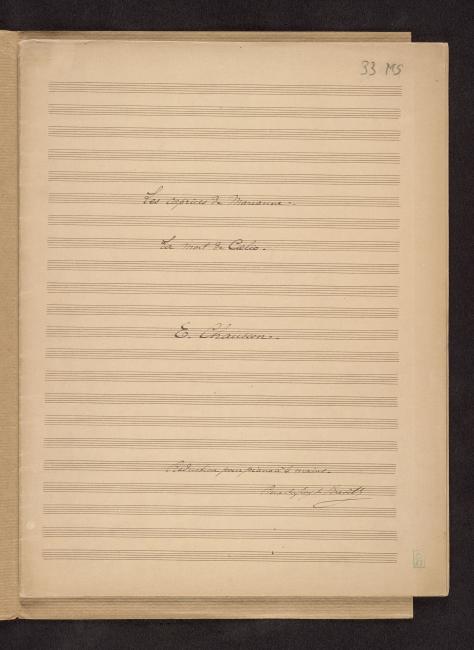 33 MS
Les caprices de Marianne.
La mort de Cœlio.
E. Chausson.
Réduction pour piano à 4 mains.